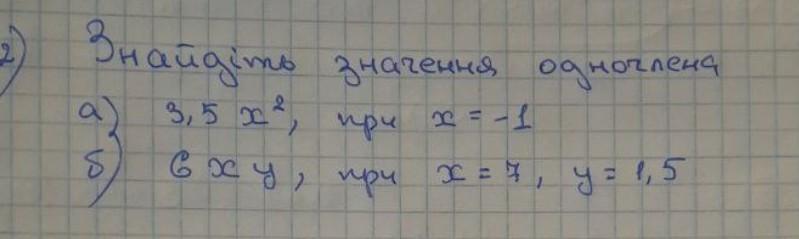 2) Знайдіть значення одночлена
а) 3,5 x², при x = -1
б) 6xy, при x = 7, y = 1,5